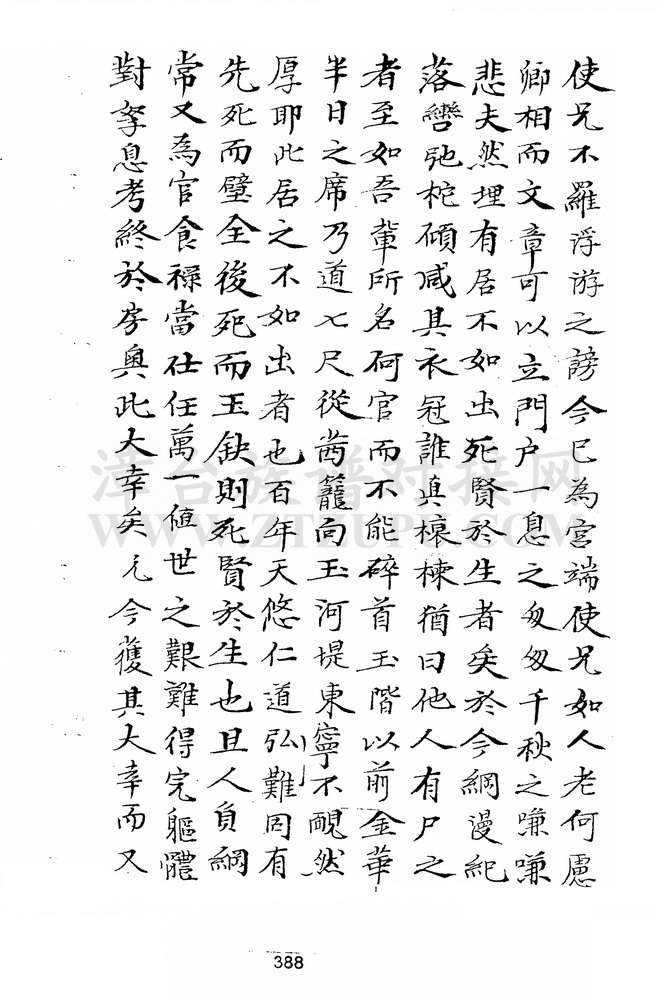 使兄不羅浮游之謗今已為宮端使兄如人老何慮
卿相而文章可以立門户一息之匆匆千秋之嗛嗛
悲夫然埋有居不如出死賢於生者矣於今綱漫紀
落轡弛柁碩减其衣冠誰真榱棟猶曰他人有尸之
者至如吾輩所名何官而不能碎首玉階以前金華
半日之席乃道七尺從茜籠向玉河堤東寧不靦然
厚耶此居之不如出者也百年天悠仁道弘難罔有
先死而璧全後死而玉缺則死賢於生也且人負綱
常又為官食祿當仕任萬一值世之艱難得完軀體
對孥息考終於房奥此大幸矣兄今獲其大幸而又
漳台族譜对接网
WWW.ZTZUPU.COM
388